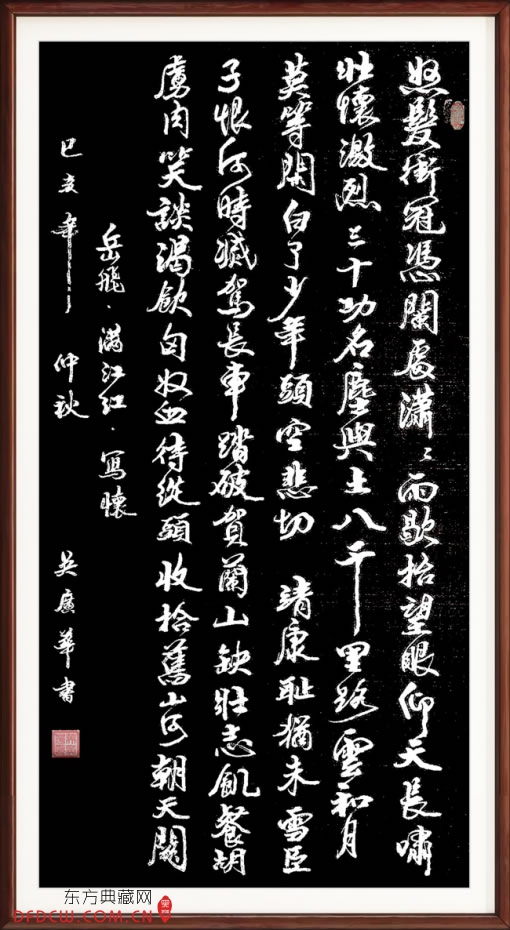 怒髮衝冠憑闌處瀟〻雨歇抬望眼仰天長嘯
壯懷激烈三十功名塵與土八千里路雲和月
莫等閑白了少年頭空悲切 靖康耻猶未雪臣
子恨何時滅駕長車踏破賀蘭山缺壯志飢餐胡
虜肉笑談渴飲匈奴血待從頭收拾舊山河朝天闕
岳飛·滿江紅·寫懷
己亥年 仲秋 吴廣華書
东方典藏网
DFDCW.COM.CN